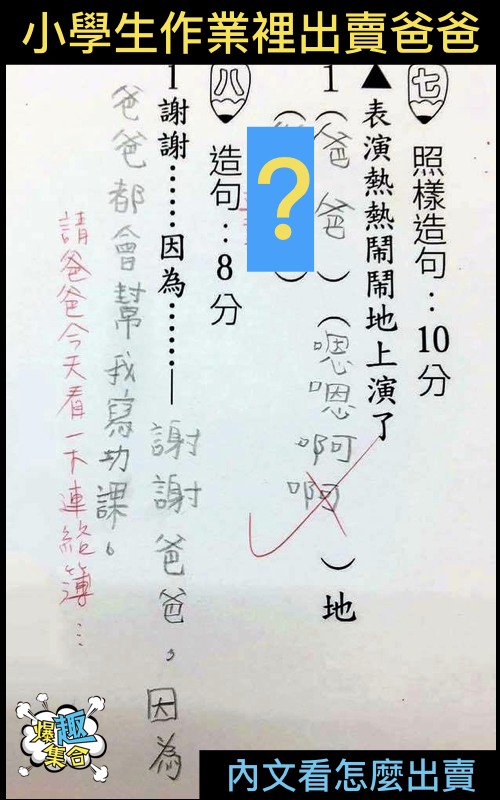 小學生作業裡出賣爸爸
七 照樣造句：10分
▲表演熱熱鬧鬧地上演了
1（爸爸）（嗯嗯啊啊）地
?
八 造句：8分
1謝謝……因為……—謝謝爸爸，因為
爸爸都會幫我寫功課。
請爸爸今天看一下連絡簿…
爆趣集合
內文看怎麼出賣